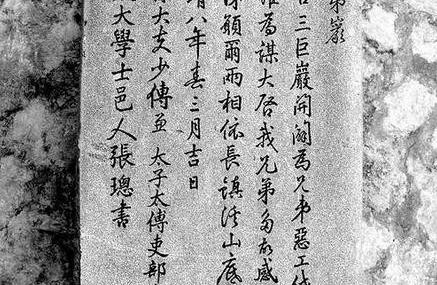 弟巖
三巨巖開闢為兄弟惡工伐
為謀大啓我兄弟多故感
願爾兩相依長鎮山底
靖八年春三月吉日
大夫少傅兼太子太傅吏部
大學士邑人張璁書